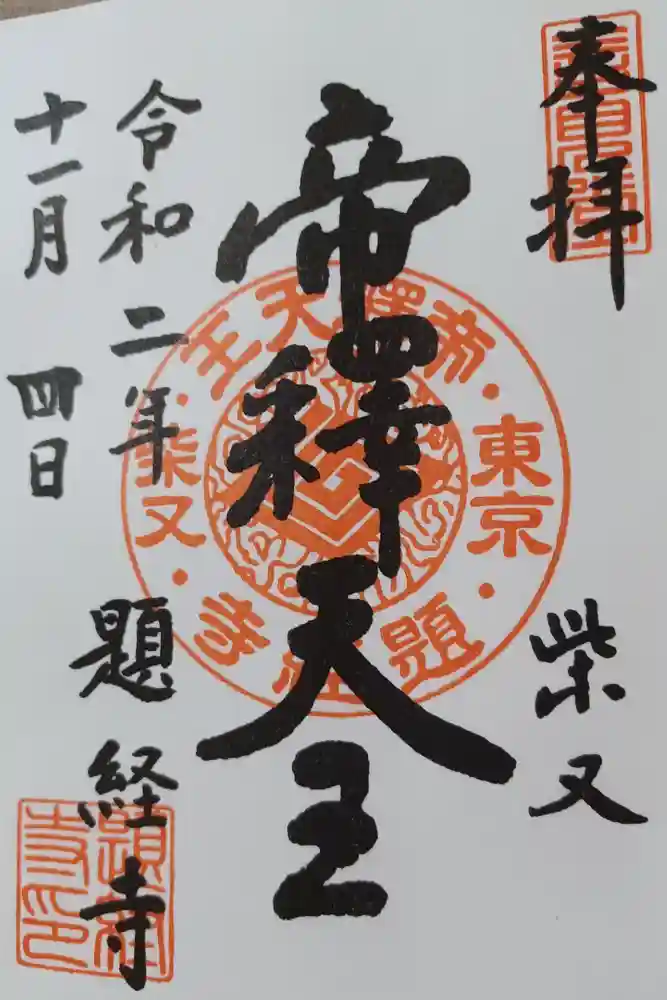 奉拝
柴又
帝釋天王
令和二年
十一月四日
題経寺
帝釋天王
東京
柴又
題経寺
題経寺印